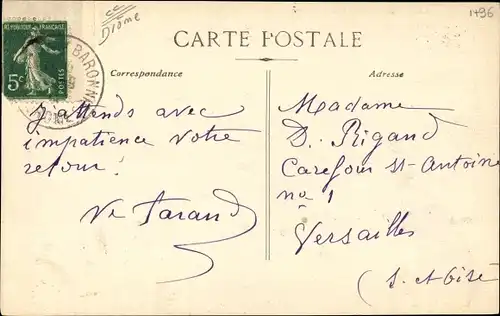 1796
cc
Drôme
CARTE POSTALE
REPUBLIQUE FRANÇAISE
5c
POSTES
BARONN
DROME
Correspondance
Adresse
J'attends avec
impatience votre
retour!
Ve Tarand
Madame
D. Rigaud
Carefour St-Antoine
no 1
Versailles
(S. et Oise